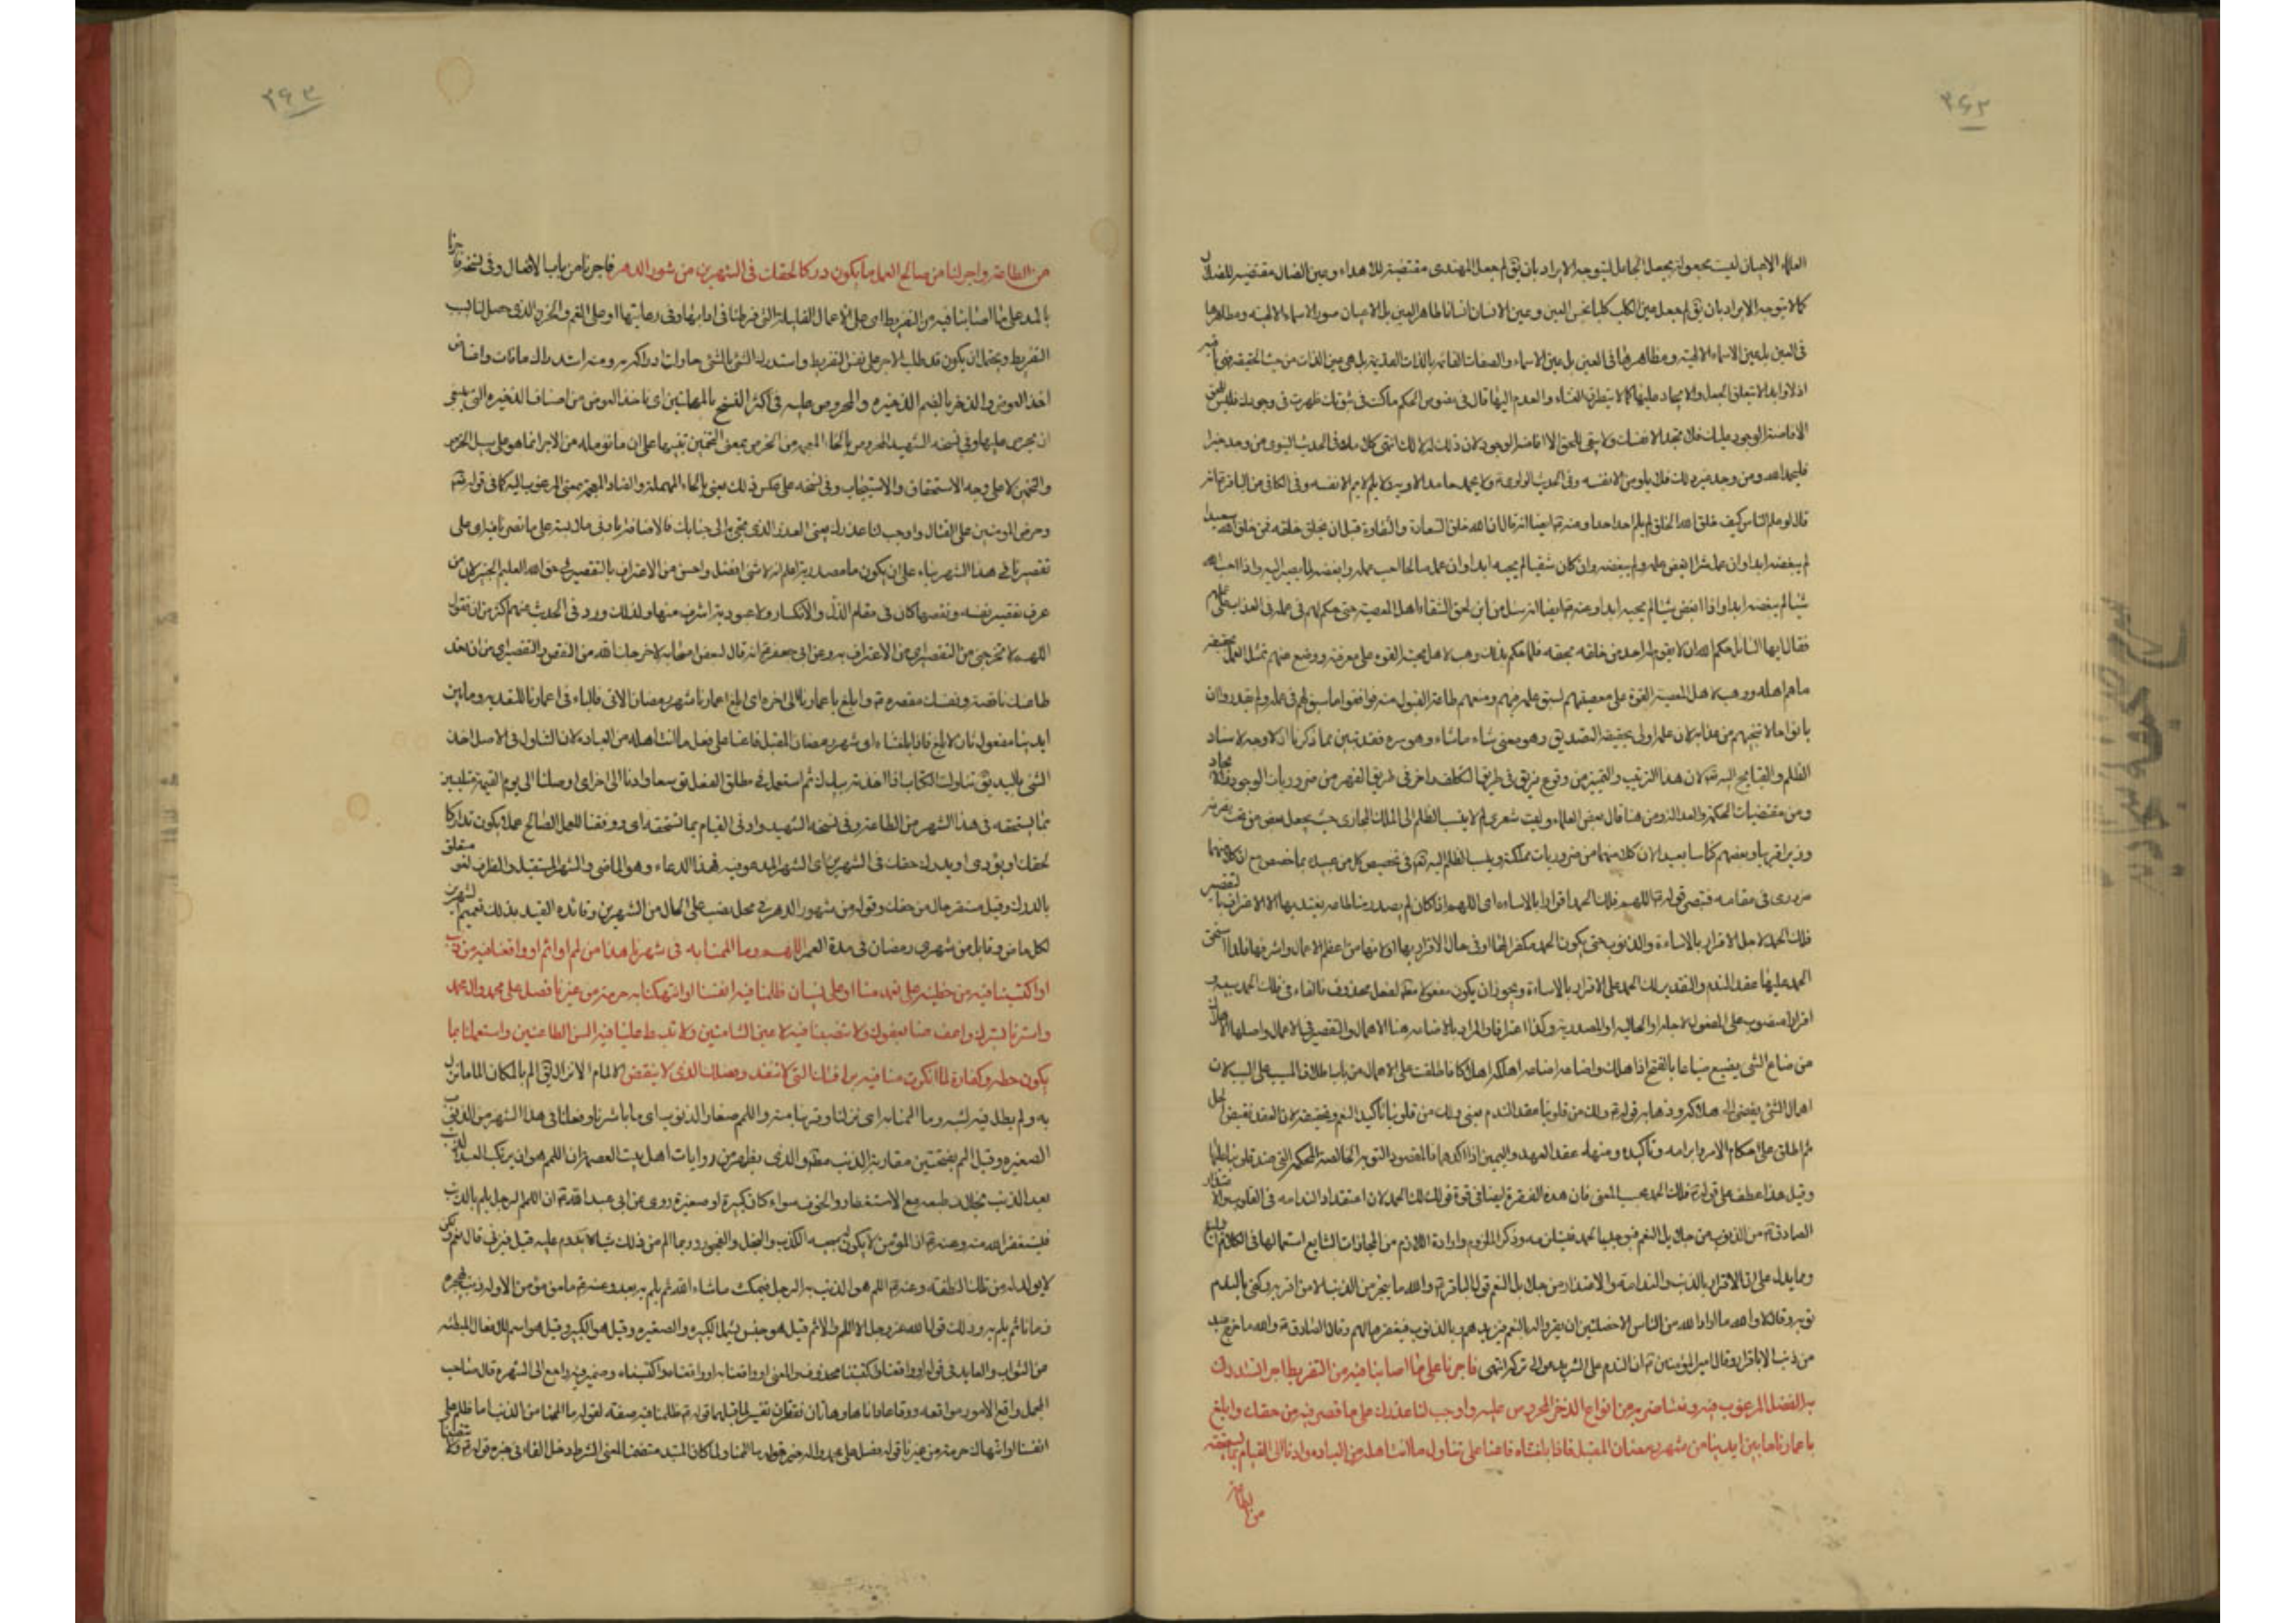 ۳۶۲
العلماء الاعيان ليست مجعولة بجعل الجاعل ليتوجه الايراد بان يق لم جعل المهتدى مقتضية للاهتداء وعين الضال مقتضيه للضلال
كما لا يتوجه الايراد بان يق لم جعل عين الكلب كلبا نجس العين وعين الانسان انسانا طاهر العين بل الاعيان صور الاسماء الالهية ومظاهرها
فى العين بل عين الاسماء الالهية ومظاهرها فى العين بل عين الاسماء والصفات القائمه بالذات القديمة بل هى عين الذات من حيث الحقيقه فهى باقيه
اذلا وابدا لا يتعلق الجعل والايجاد عليها كما لا يتطرق الفناء والعدم اليها قال فى فصوص الحكم ما كنت فى ثبوتك ظهرت فى وجودك فليس للحق
الا افاضة الوجود عليك فلا تحمد الا نفسك ولا يبقى للحق الا افاضة الوجود لان ذلك له لا لك انتهى كلامه وفى الحديث النبوى من وجد خيرا
فليحمد الله ومن وجد غير ذلك فلا يلومن الا نفسه وفى الحديث ولا يحمد حامد الا ربه ولا يلم لائم الا نفسه وفى الكافى عن الباقر ع انه
قال لو علم الناس كيف خلق الله الخلق لم يلم احد احدا وعنه ع ايضا انه قال ان الله خلق السعادة والشقاوة قبل ان يخلق خلقه فمن خلقه الله سعيدا
لم يبغضه ابدا وان عمل شرا ابغض عمله ولم يبغضه وان كان شقيا لم يحبه ابدا وان عمل صالحا احب عمله وابغضه لما يصير اليه واذا احب الله
شيئا لم يبغضه ابدا واذا ابغض شيئا لم يحبه ابدا وعنه ع ايضا انه سئل من اين لحق الشقاء اهل المعصية حتى حكم لهم فى علمه فى العذاب على عملهم
فقال ايها السائل حكم الله ان لا يقوم له احد من خلقه بحقه فلما حكم بذلك وهب لاهل محبته القوة على معرفته ووضع عنهم ثقل العمل بحقيقة
ما هم اهله ووهب لاهل المعصية القوة على معصيتهم لسبق علمه فيهم ومنعهم طاعة القبول منه فوافقوا ما سبق لهم فى علمه ولم يقدروا ان
ياتوا حالا تنجيهم من عذابه لان علمه اولى بحقيقة التصديق وهو معنى شاء ما شاء وهو سره فقد تبين مما ذكرنا ان لا وجه لاسناد
الظلم والقبايح اليه تعه لان هذا الترتيب والتميز من وقوع فريق فى طريق اللطف واخر فى طريق القهر من ضروريات الوجود والايجاد
ومن مقتضيات الحكمة والعدالة ومن هنا قال بعض العلماء وليت شعرى لم لا ينسب الظلم الى الملك المجازى حيث يجعل بعض من تحت تصرفه
وزيرا قريبا وبعضهم كناسا بعيدا لان كلا منهما من ضروريات مملكته وينسب الظلم اليه تعه فى تخصيص كل من عبيده بما خصص مع ان كلا منهما
ضرورى فى مقامه فتبصر قوله ع اللهم فلك الحمد اقرارا بالاساءة اى اللهم اذا كان لم يصدر منا طاعه يعتد بها الا الاعتراف بالتقصير
فلك الحمد لاجل الاقرار بالاساءة والذنوب حتى يكون الحمد مكفرا لها او فى حال الاقرار بها اولا نها من اعظم الاعمال واشرفها فلذا استحق
الحمد عليها عقد الندم والتقدير لك الحمد على الاقرار بالاساءة ويجوز ان يكون مفعولا مطلقا لفعل محذوف فالفاء فى فلك الحمد سببية و
اقرارا منصوب على المفعول لاجله او الحاليه او المصدرية وكذا اعترافا والمراد بالاضاعه هنا الاهمال والتقصير فى الاعمال واصلها الاهلاك
من ضاع الشئ يضيع ضياعا بالفتح اذا هلك واضاعه اضاعه اهلكه اهلاكا فاطلقت على الاهمال من باب اطلاق المسبب على السبب لان
اهمال الشئ يفضى الى هلاكه وذهابه قوله ع ولك من قلوبنا عقد الندم يعنى ولك من قلوبنا تاكيد الندم وتحقيقه لان العقد نقيض الحل
ثم اطلق على احكام الامر وابرامه وتأكيده ومنه عقد العهد واليمين اذا اكدهما فالمقصود التوبة الخالصة المحكمه التى عقد قلوبنا عليها
وقيل هذا عطف على قوله ع فلك الحمد بحسب المعنى فان هذه الفقرة ايضا فى قوة قولك لك الحمد لان اعتقاد الندامه فى القلوب والاعتذار
الصادقة من الذنوب من جلائل النعم فيوجب الحمد فهذا من قبيل ذكر الملزوم وارادة اللازم من المجازات الشايع استعمالها فى الكلام البليغ
ومما يدل على ان الاقرار بالذنب والندامة والاعتذار من جلائل النعم قول الباقر ع والله ما ينجو من الذنب الا من اقر به وكفى بالندم
توبه وقال لا والله ما اراد الله من الناس الا خصلتين ان يقروا له بالنعم فيزيدهم وبالذنوب فيغفرها لهم وقال الصادق ع والله ما خرج عبد
من ذنب الا باقرار وقال امير المؤمنين ع ان الندم على الشر يدعو الى تركه انتهى فاجرنا على ما اصابنا فيه من التفريط اجرا نستدرك
به الفضل المرغوب فيه ونعتاض به من انواع الذخر المحروص عليه واوجب لنا عذرك على ما قصرنا فيه من حقك وابلغ
باعمارنا ما بين ايدينا من شهر رمضان المقبل فاذا بلغتناه فاعنا على تناول ما انت اهله من العبادة وادنا الى القيام بما يستحقه
من الطاعة
۳۶۳
من الطاعة واجر لنا من صالح العمل ما يكون دركا لحقك فى الشهرين من شهور الدهر فاجرنا من باب الافعال وفى نسخة فآجرنا
بالمد على ما اصابنا فيه من التفريط اى على الاعمال القليلة التى فرطنا فى ادابها وفى رعايتها او على الغم والحزن الذى حصل لنا بسبب
التفريط ويحتمل ان يكون قد طلب الاجر على نفس التفريط واستدرك الشئ بالشئ حاولت ادراكه به ومنه استدراك ما فات واعتاض
اخذ العوض والذخر بالضم الذخيره والمحروص عليه فى اكثر النسخ بالمهملتين اى ناخذ العوض من اصناف الذخيره التى ينبغى
ان يحرص عليها وفى نسخه الشهيد المخروص بالخاء المعجمه من الخرص بمعنى التخمين تنبيها على ان ما نؤمله من الاجر انما هو على سبيل الخرص
والتخمين لا على وجه الاستحقاق والاستيجاب وفى نسخه على عكس ذلك يعنى بالحاء المهملة والضاد المعجمة بمعنى المرغوب اليه كما فى قوله تعه
وحرض المومنين على القتال واوجب لنا عذرك يعنى العذر الذى يحتج به الى جنابك فالاضافة بادنى ملابسة على ما قصرنا فيه اى على
تقصيرنا فى هذا الشهر بناء على ان يكون ما مصدرية اعلم انه لا شئ افضل واحسن من الاعتراف بالتقصير فى حق الله العليم الخبير لان من
عرف تقصير نفسه ونقصها كان فى مقام الذل والانكسار ولا عبودية اشرف منها ولذلك ورد فى الحديث عنهم اكثر من ان تقول
اللهم لا تخرجنى من التقصير اى من الاعتراف به وعن ابى جعفر ع انه قال لبعض اصحابه لا اخرجك الله من النقص والتقصير اى من ان تعد
طاعتك ناقصة ونفسك مقصره قه وابلغ باعمارنا الى اخره اى ابلغ اعمارنا شهر رمضان الاتى فالباء فى اعمارنا للتعديه وما بين
ايدينا مفعول ثان لابلغ فاذا بلغتناه اى شهر رمضان المقبل فاعنا على فعل ما انت اهله من العباده لان التناول فى الاصل اخذ
الشئ باليد يق تناولت الكتاب اذا اخذته بيدك ثم استعمل فى مطلق الفعل توسعا وادنا الى اخره اى اوصلنا الى يوم القيمة متلبسين
بما يستحقه فى هذا الشهر من الطاعة وفى نسخه الشهيد وادنى القيام بما تستحقه اى ووفقنا للعمل الصالح عملا يكون تداركا
لحقك او يؤدى او يدرك حقك فى الشهرين اى الشهر المدعو فيه بهذا الدعاء وهو الماضى والشهر المستقبل والظرف لغو متعلق
بالدرك وقيل مستقر حال من حقك وقوله من شهور الدهر فى محل نصب على الحال من الشهرين وفائده القيد بذلك تعميم الشهرين
لكل ماض وقابل من شهرى رمضان فى مدة العمر اللهم وما الممنا به فى شهرنا هذا من لمم او اثم او واقعنا فيه من ذنب
او اكتسبنا فيه من خطيئة على تعمد منا او على نسيان ظلمنا فيه انفسنا او انتهكنا به حرمة من غيرنا فصل على محمد وال محمد
واسترنا بسترك واعف عنا بعفوك ولا تنصبنا فيه لاعين الشامتين ولا تبسط علينا فيه السن الطاعنين واستعملنا بما
يكون حطة وكفارة لما انكرت منا فيه برافتك التى لا تنفد وفضلك الذى لا ينقص الالمام الانزال يق الم بالمكان الماما نزل
به ولم يطل فيه لبثه وما الممنا به اى نزلنا وقربنا منه واللمم صغار الذنوب اى ما باشرنا وفعلنا فى هذا الشهر من الذنوب
الصغيره وقيل اللمم بفتحتين مقاربة الذنب مطلقا والذى يظهر من روايات اهل بيت العصمة ان اللمم هو ان يرتكب العبد الذنب
بعد الذنب بخلاف طبعه مع الاستغفار والخوف سواء كان كبيرة او صغيرة روى عن ابى عبد الله ع ان اللمم الرجل يلم بالذنب
فيستغفر الله منه وعنه ع ان المؤمن لا يكون سجيته الكذب والبخل والفجور وربما الم من ذلك شيئا لا يدوم عليه قيل فيزنى قال نعم ولكن
لا يولد له من تلك النطفه وعنه ع اللمم هو الذنب يلم به الرجل فيمكث ما شاء الله ثم يلم به بعد وعنه ع ما من مؤمن الا وله ذنب يهجره
زمانا ثم يلم به وذلك قول الله عز وجل الا اللمم والاثم قيل هو جنس يشمل الكبيره والصغيره وقيل هو الكبيره وقيل هو اسم للافعال المبطئه
من الثواب والعايد فى قوله او واقعنا او اكتسبنا محذوف والمعنى او واقعنا به او واقعناه واكتسبناه وضمير فيه راجع الى الشهر قال صاحب
المجمل واقع الامور مواقعه ووقاعا داناها وهاتان الفقرتان تفسير لما قبلهما قوله ع ظلمنا فيه صفة لقوله ما الممنا من الذنب ما ظلم على
انفسنا وانتهاك حرمة من غيرنا قوله فصل على محمد واله خبر قوله ما الممنا ولما كان المبتدا متضمنا لمعنى الشرط دخل الفاء فى خبره قوله ع ولا تنصبنا